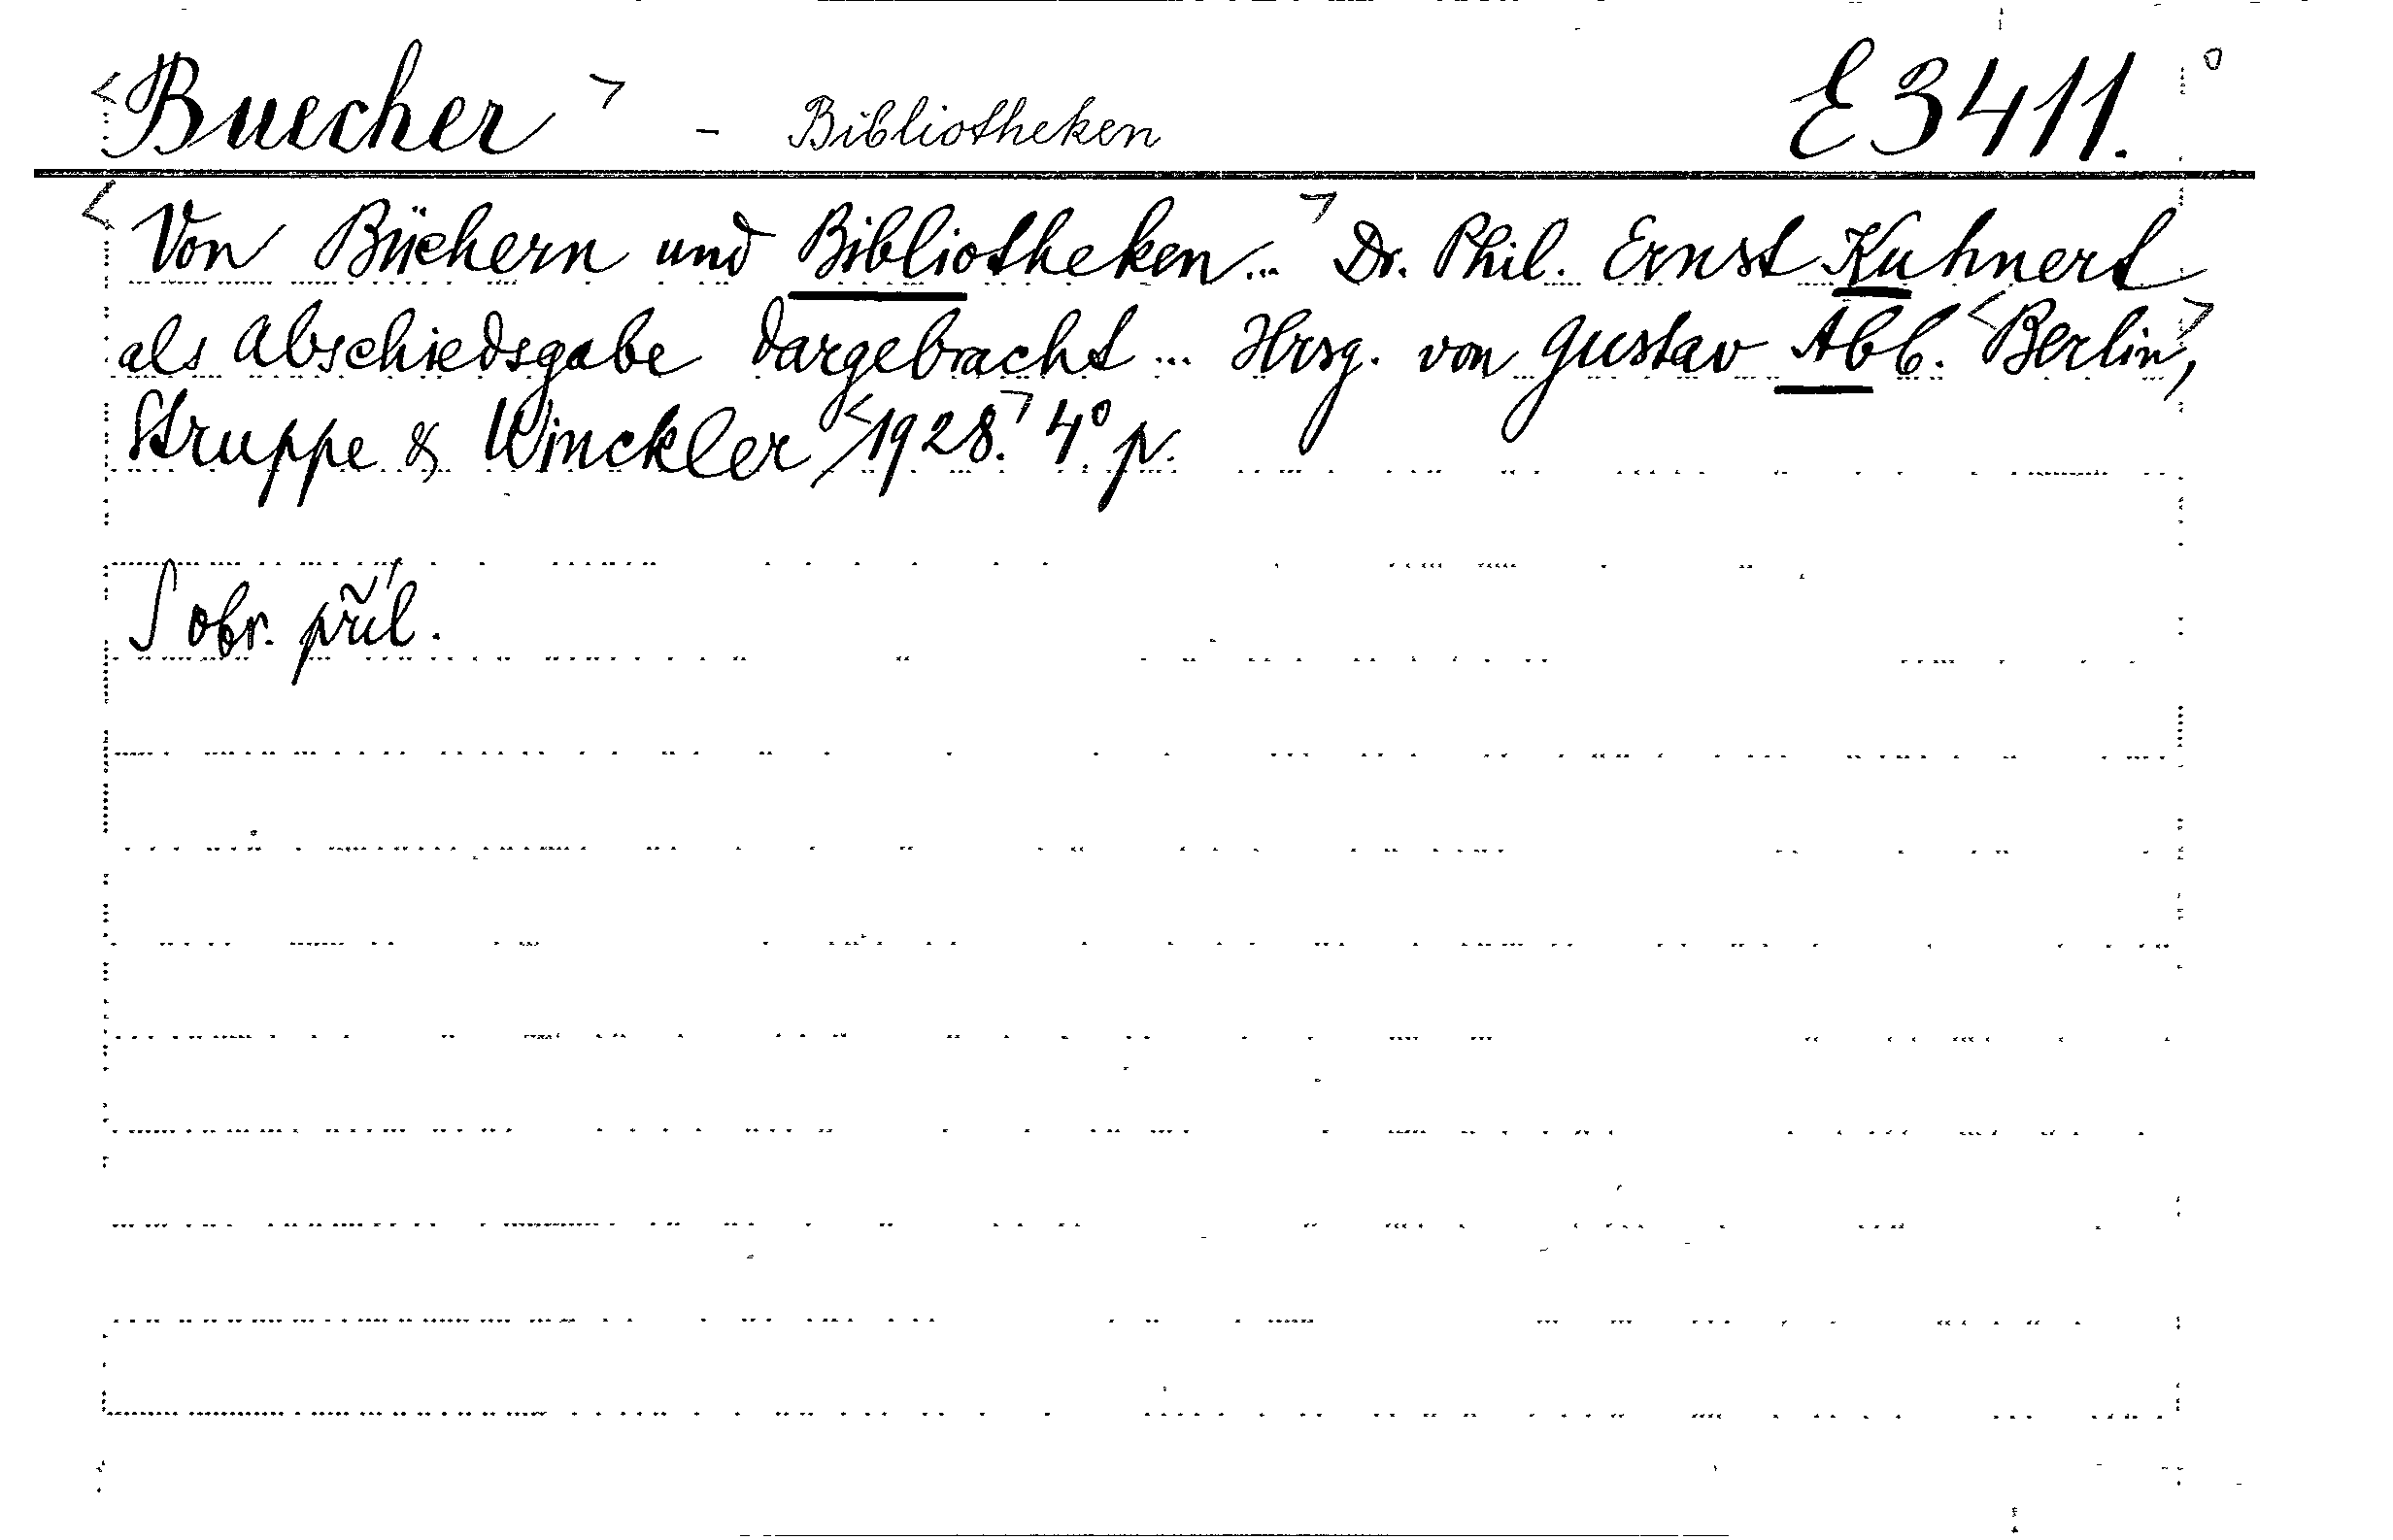 <Buecher> - Bibliotheken E 3411.
<Von Büchern und Bibliotheken...> Dr. Phil. Ernst Kuhnert
als Abschiedsgabe dargebracht... Hrsg. von Gustav Abb. <Berlin>,
Struppe & Winckler <1928.> 4° p.
S obr. příl.